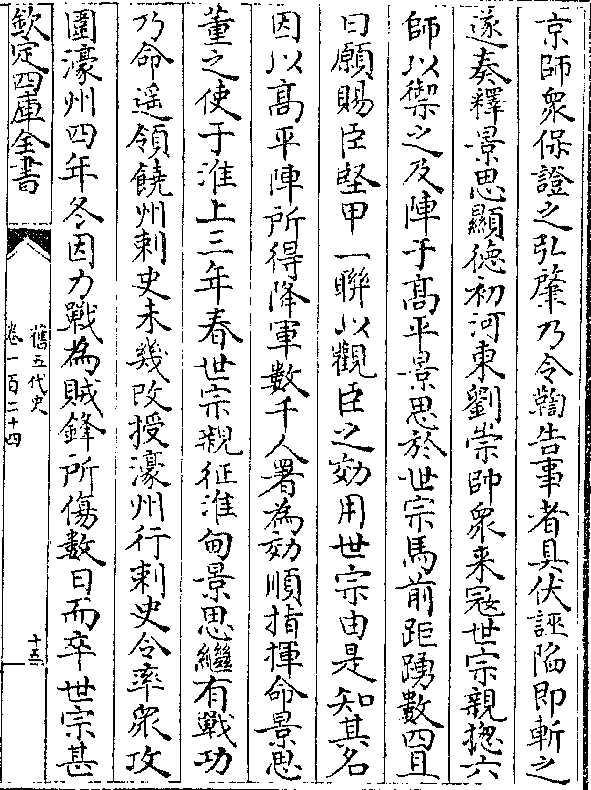 京師衆保證之弘肇乃令鞫告事者具伏誣陷即斬之
遂奏釋景思顯德初河東劉崇帥衆来冦世宗親揔六
師以禦之及陣于高平景思於世宗馬前距踴數四且
曰願賜臣堅甲一聯以觀臣之効用世宗由是知其名
因以高平陣所得降軍數千人署為効順指揮命景思
董之使于淮上三年春世宗親征淮甸景思繼有戰功
乃命遥領饒州刺史未幾改授濠州行刺史令率衆攻
圍濠州四年冬因力戰為賊鋒所傷數日而卒世宗甚
欽定四庫全書
舊五代史
卷一百二十四
十五